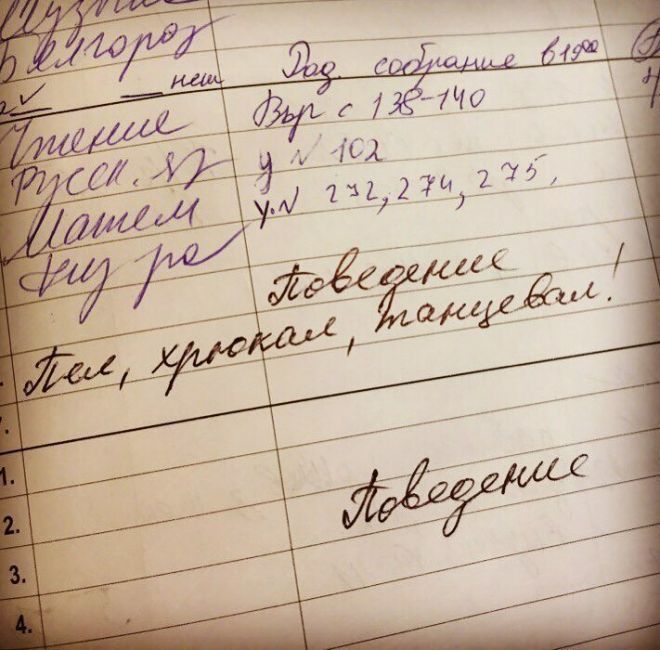 Музыка
Белгород
Род. собрание в 19⁰⁰
Чтение Выр с 138-140
Русск. яз у N 102
Матем у.N 272, 274, 275,
Физ ра
Поведение
Пел, хрюкал, танцевал!
1.
Поведение
2.
3.
4.